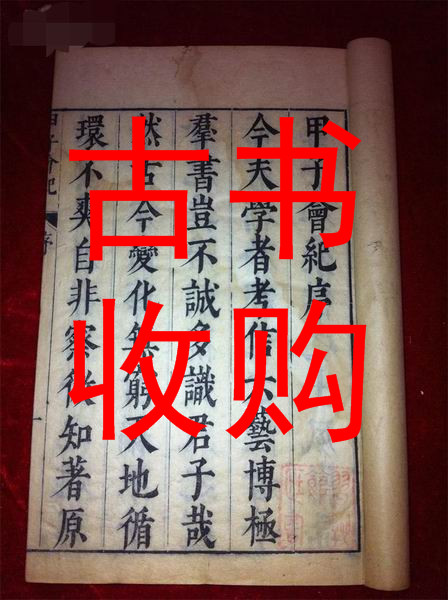 古书
收购
甲子會紀序
今夫學者考信六藝博極
羣書豈不誠多識君子哉
然古今變化無窮天地循
環不爽自非察微知著原
甲子會紀 序 一